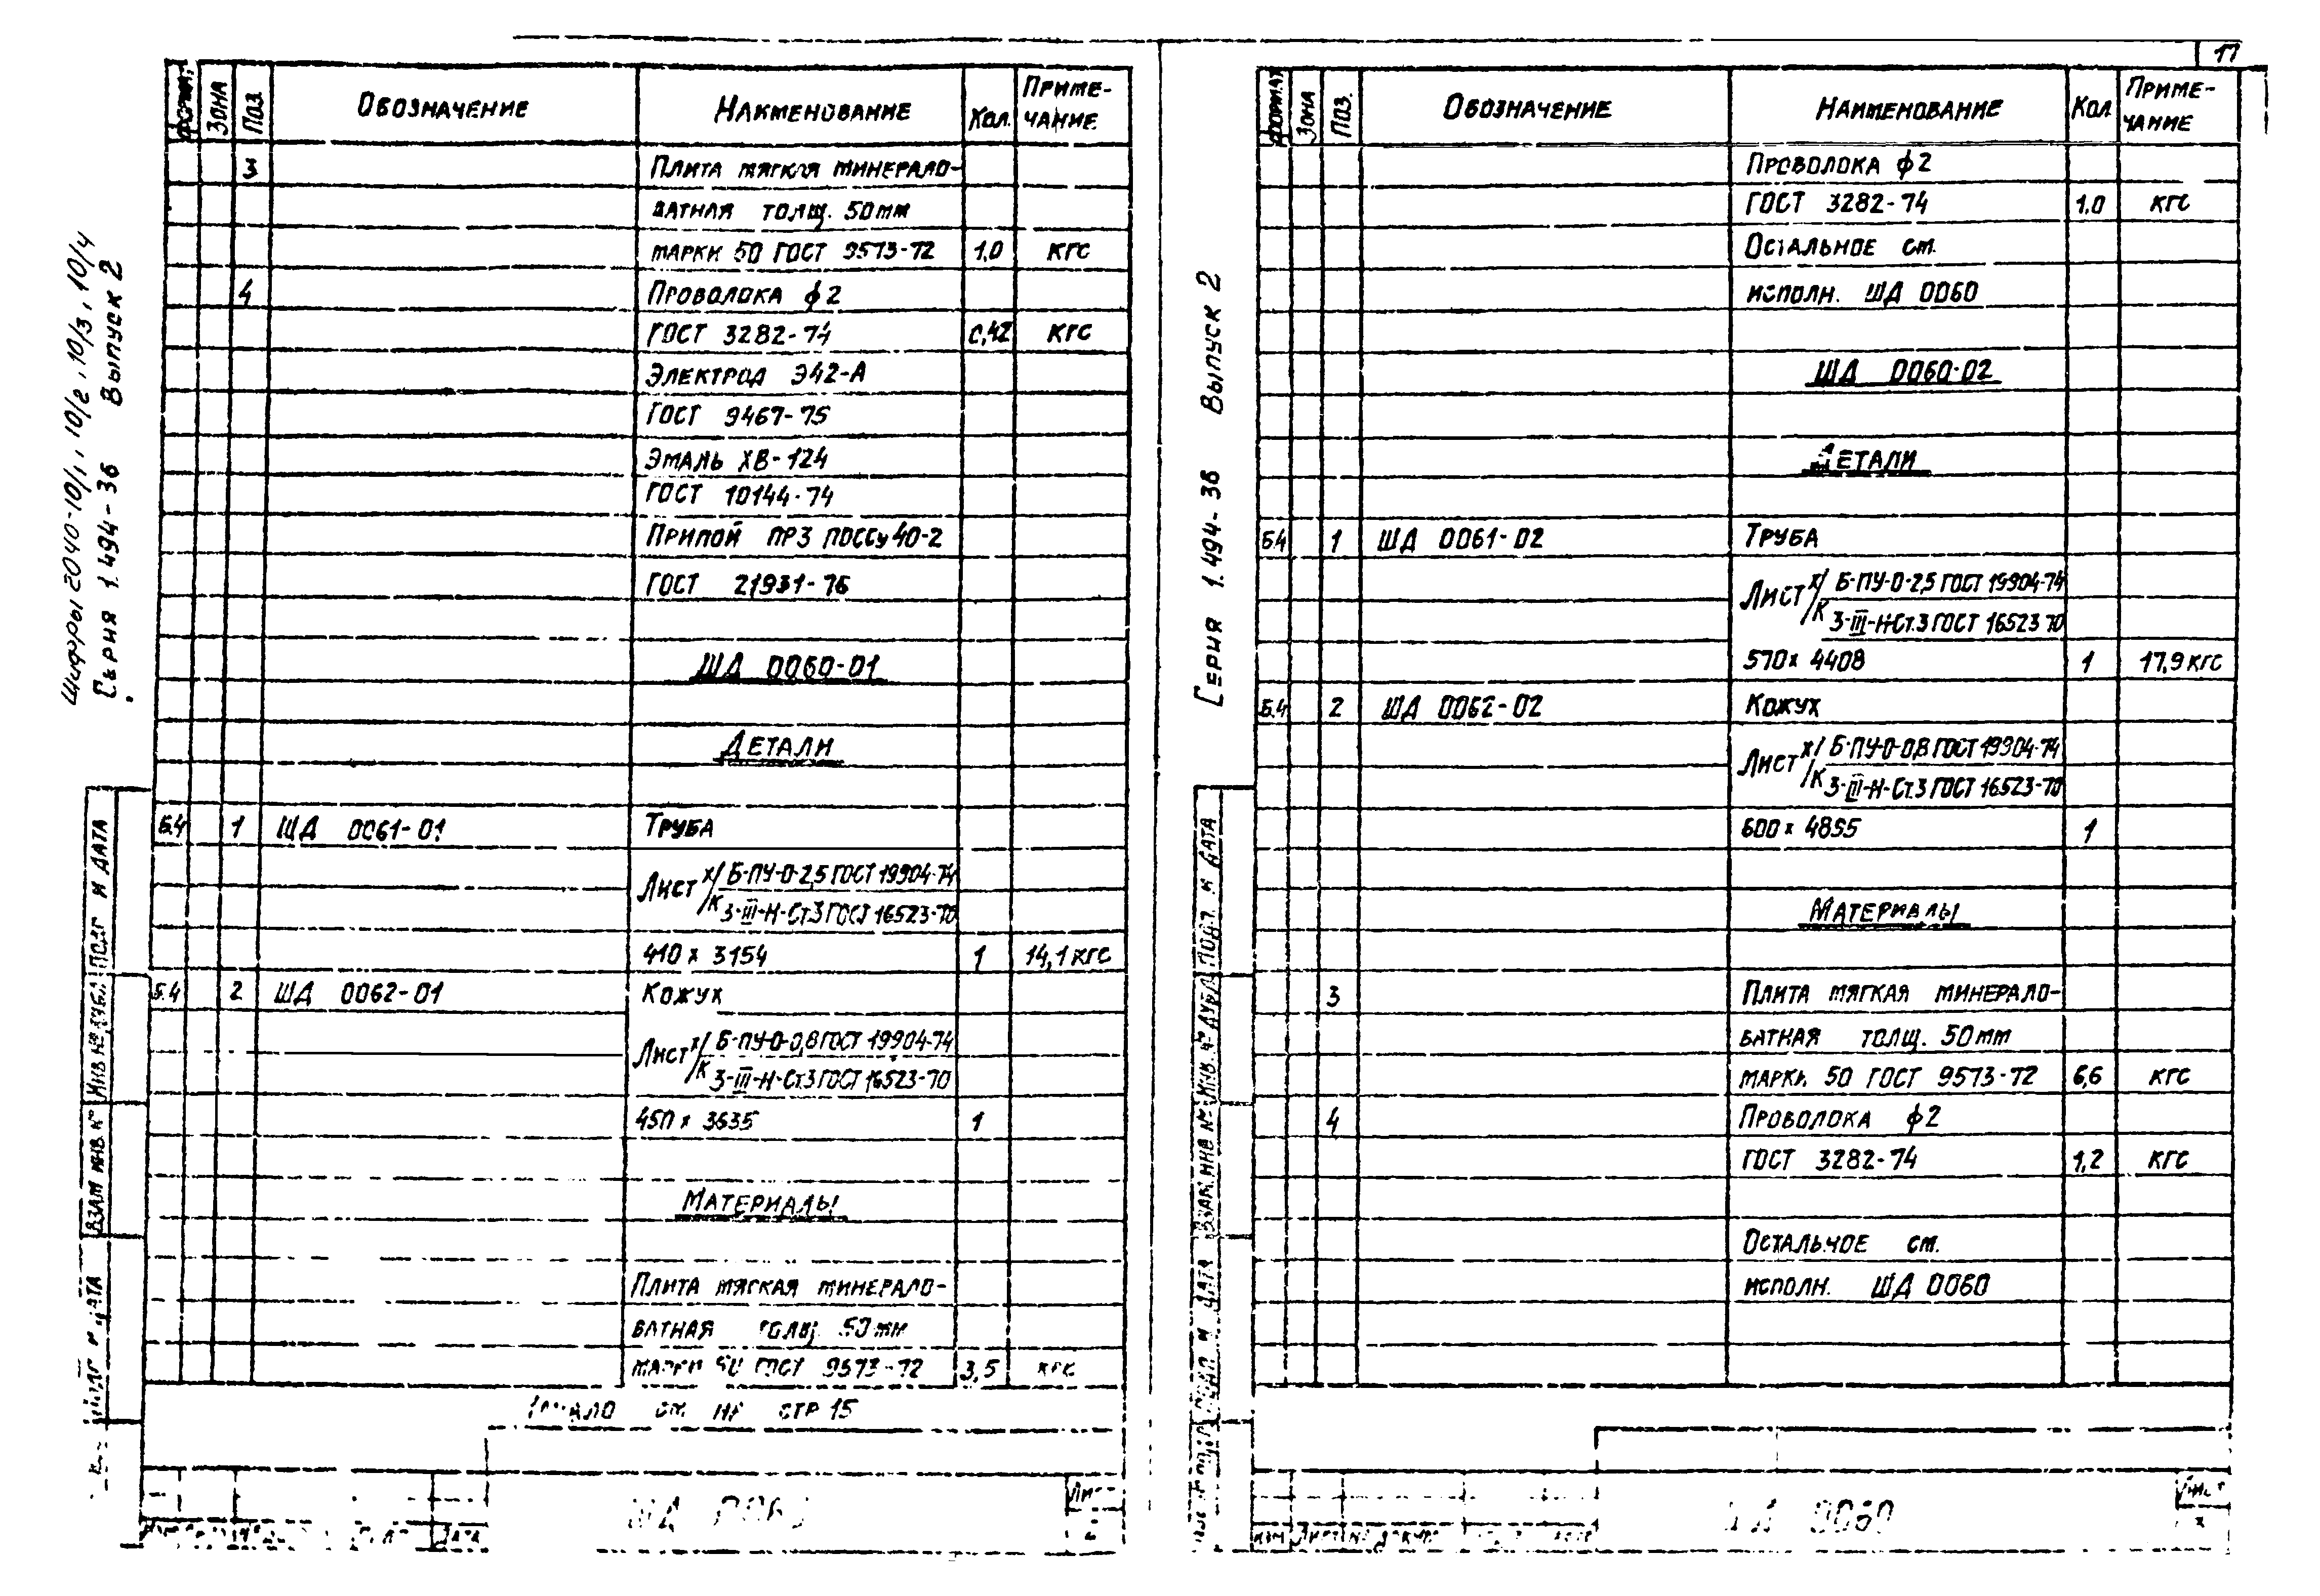 17
Шифры 2040-10/1, 10/2, 10/3, 10/4
Серия 1.494-36 Выпуск 2
Формат Зона Поз. Обозначение Наименование Кол. Приме-
чание
3 Плита мягкая минерало-
ватная толщ. 50мм
марки 50 ГОСТ 9573-72 1,0 кгс
4 Проволока ф2
ГОСТ 3282-74 0,42 кгс
Электрод Э42-А
ГОСТ 9467-75
Эмаль ХВ-124
ГОСТ 10144-74
Припой ПР3 ПОССу40-2
ГОСТ 21931-76
ШД 0060-01
Детали
Б.4 1 ШД 0061-01 Труба
Лист х/к Б-ПУ-О-2,5 ГОСТ 19904-74
3-III-Н-Ст.3 ГОСТ 16523-70
410 х 3154 1 14,1 кгс
Б.4 2 ШД 0062-01 Кожух
Лист х/к Б-ПУ-О-0,8 ГОСТ 19904-74
3-III-Н-Ст3 ГОСТ 16523-70
450 х 3635 1
Материалы
Плита мягкая минерало-
ватная толщ. 50мм
марки 50 ГОСТ 9573-72 3,5 кгс
Начало см на стр 15
ШД 0060
Лист
2
Дата
Подп и дата
Инв № дубл
Взам инв №
Серия 1.494-36 Выпуск 2
Формат Зона Поз. Обозначение Наименование Кол Приме-
чание
Проволока ф2
ГОСТ 3282-74 1,0 кгс
Остальное см.
исполн. ШД 0060
ШД 0060-02
Детали
Б4 1 ШД 0061-02 Труба
Лист х/к Б-ПУ-О-2,5 ГОСТ 19904-74
3-III-Н-Ст.3 ГОСТ 16523-70
570х 4408 1 17,9 кгс
Б.4 2 ШД 0062-02 Кожух
Лист х/к Б-ПУ-О-0,8 ГОСТ 19904-74
3-III-Н-Ст.3 ГОСТ 16523-70
600 х 4895 1
Материалы
3 Плита мягкая минерало-
ватная толщ. 50мм
марки 50 ГОСТ 9573-72 6,6 кгс
4 Проволока ф2
ГОСТ 3282-74 1,2 кгс
Остальное см.
исполн. ШД 0060
Подп. и дата
Инв. № дубл
Взам инв №
Подп и дата
ШД 0060
Лист
3
Изм Лист № докум